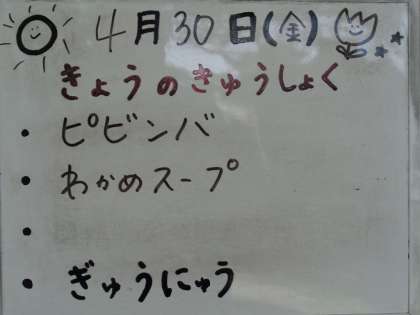 4月30日(金)
きょうのきゅうしょく
・ピビンバ
・わかめスープ
・
・ぎゅうにゅう